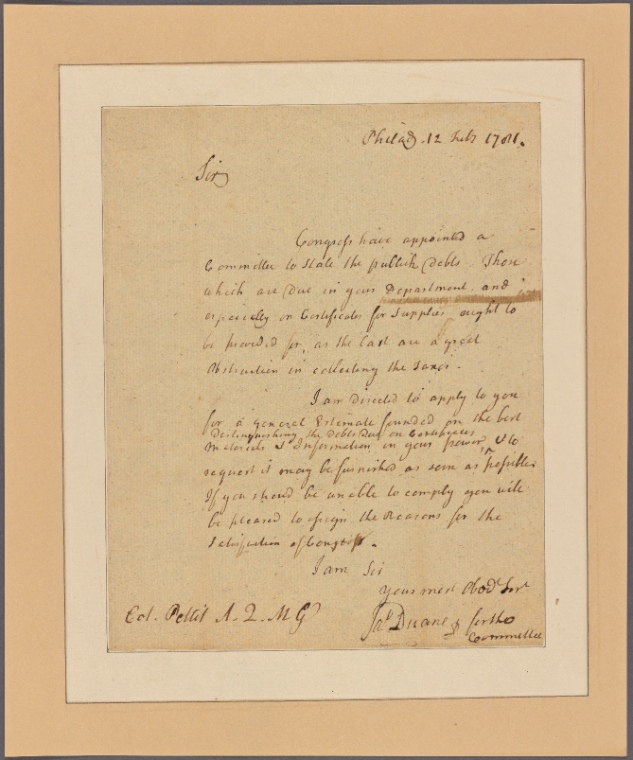 Philadᵃ 12 Feby 1781.
Sir
Congress have appointed a
Committee to State the publick Debts. Those
which are Due in your Department and
especially on Certificates for Supplies ought to
be provided for, as the last are a great
Obstruction in collecting the Taxes.
I am Directed to apply to you
for a General Estimate founded on the best
Distinguishing the Debts Due on Certificates
Materials & Information in your power & to
request it may be furnished as soon as possible.
If you should be unable to comply you will
be pleased to assign the Reasons for the
Satisfaction of Congress.
I am Sir
Your most Obedt Servt
Jas Duane for the
Committee
Col. Pettit A. Q. M G